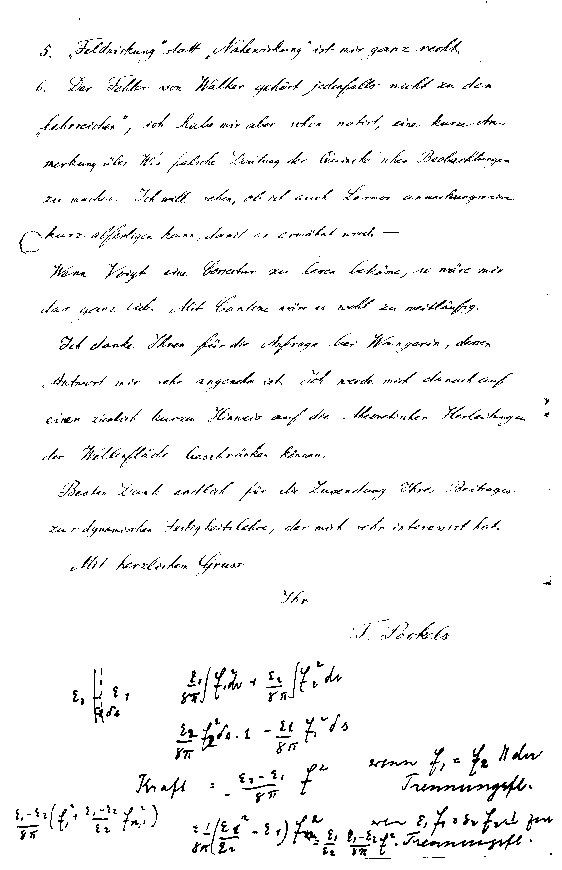 5. „Feldwirkung" statt „Nahewirkung" ist mir ganz recht.
6. Der Fehler von Walker gehört jedenfalls nicht zu den
„lehrreichen", ich habe mir aber schon notirt, eine kurze An-
merkung über W's falsche Deutung der Quincke'schen Beobachtungen
zu machen. Ich will sehen, ob ich auch anmerkungsweise
kurz abfertigen kann, damit er erwähnt wird —
Wenn Voigt eine Correctur zu lesen bekäme, so wäre mir
das ganz lieb. Mit Cantone wäre es wohl zu weitläufig.
Ich danke Ihnen für die Anfrage bei Wangerin, dessen
Antwort mir sehr angenehm ist. Ich werde mich danach auf
einen ziemlich kurzen Hinweis auf die theoretischen Herleitungen
der Wellenfläche beschränken können.
Besten Dank endlich für die Zusendung Ihres Beitrages
zur dynamischen Festigkeitslehre, der mich sehr interessirt hat.
Mit herzlichem Gruss
Ihr
F. Pockels
ε₂ ε₁
ds
ε₁/8π ∫ f₁² dv + ε₂/8π ∫ f₂² dv
ε₂/8π f₂² ds · 1 − ε₁/8π f₁² ds
Kraft = ε₂−ε₁/8π f² wenn f₁ = f₂ || der
Trennungsfl.
wenn ε₁f₁ = ε₂f₂ ⊥ zur
Trennungsfl.